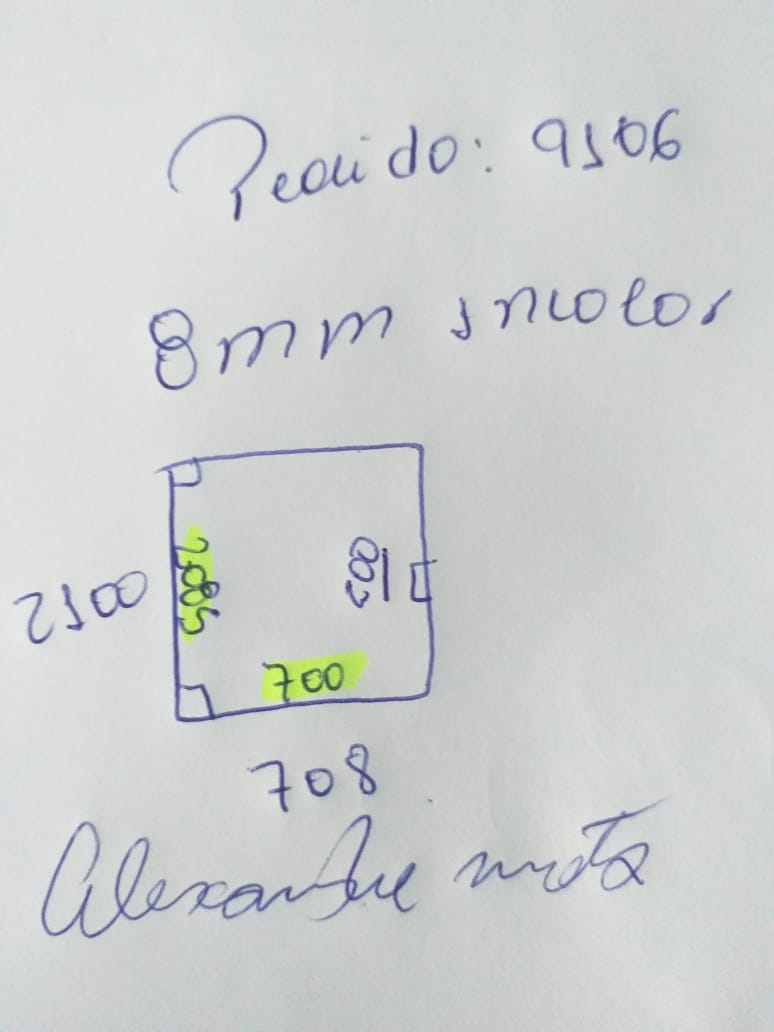 Pedido: 9506
8mm incolor
2100
2085
700
708
Alexandre mota